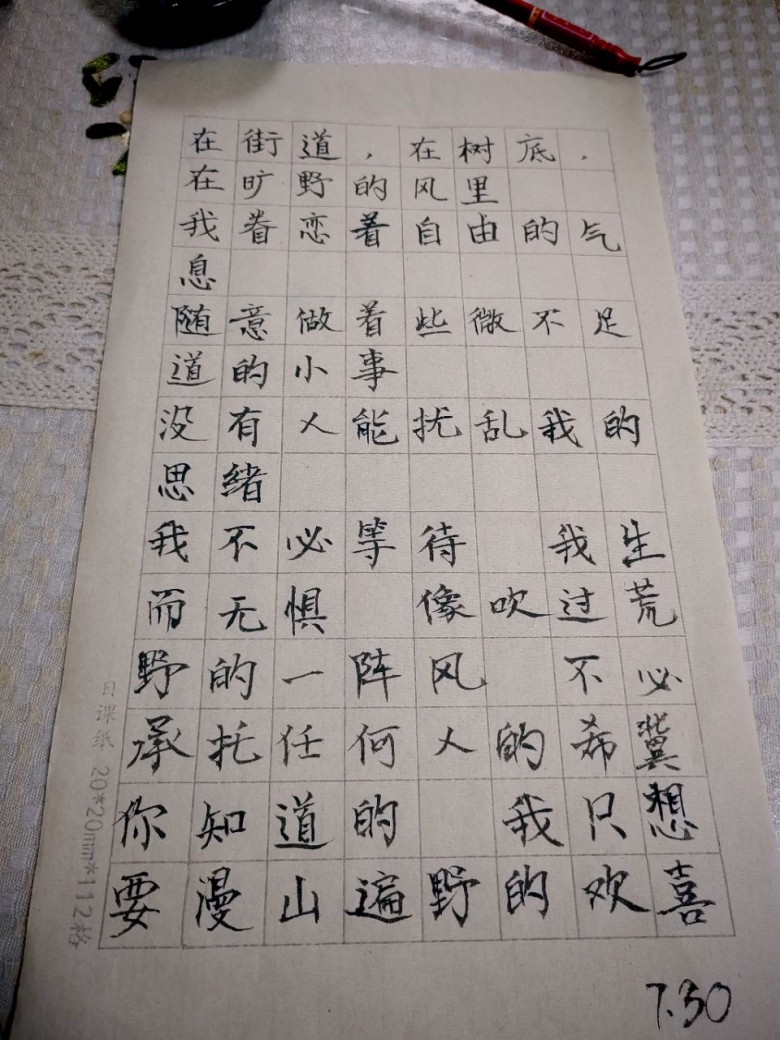 在街道，在树底，
在旷野的风里
我眷恋着自由的气
息
随意做着些微不足
道的小事
没有人能扰乱我的
思绪
我不必等待 我生
而无惧 像吹过荒
野的一阵风 不必
承托任何人的希冀
你知道的 我只想
要漫山遍野的欢喜
7.30
日课纸 20*20mm*112格